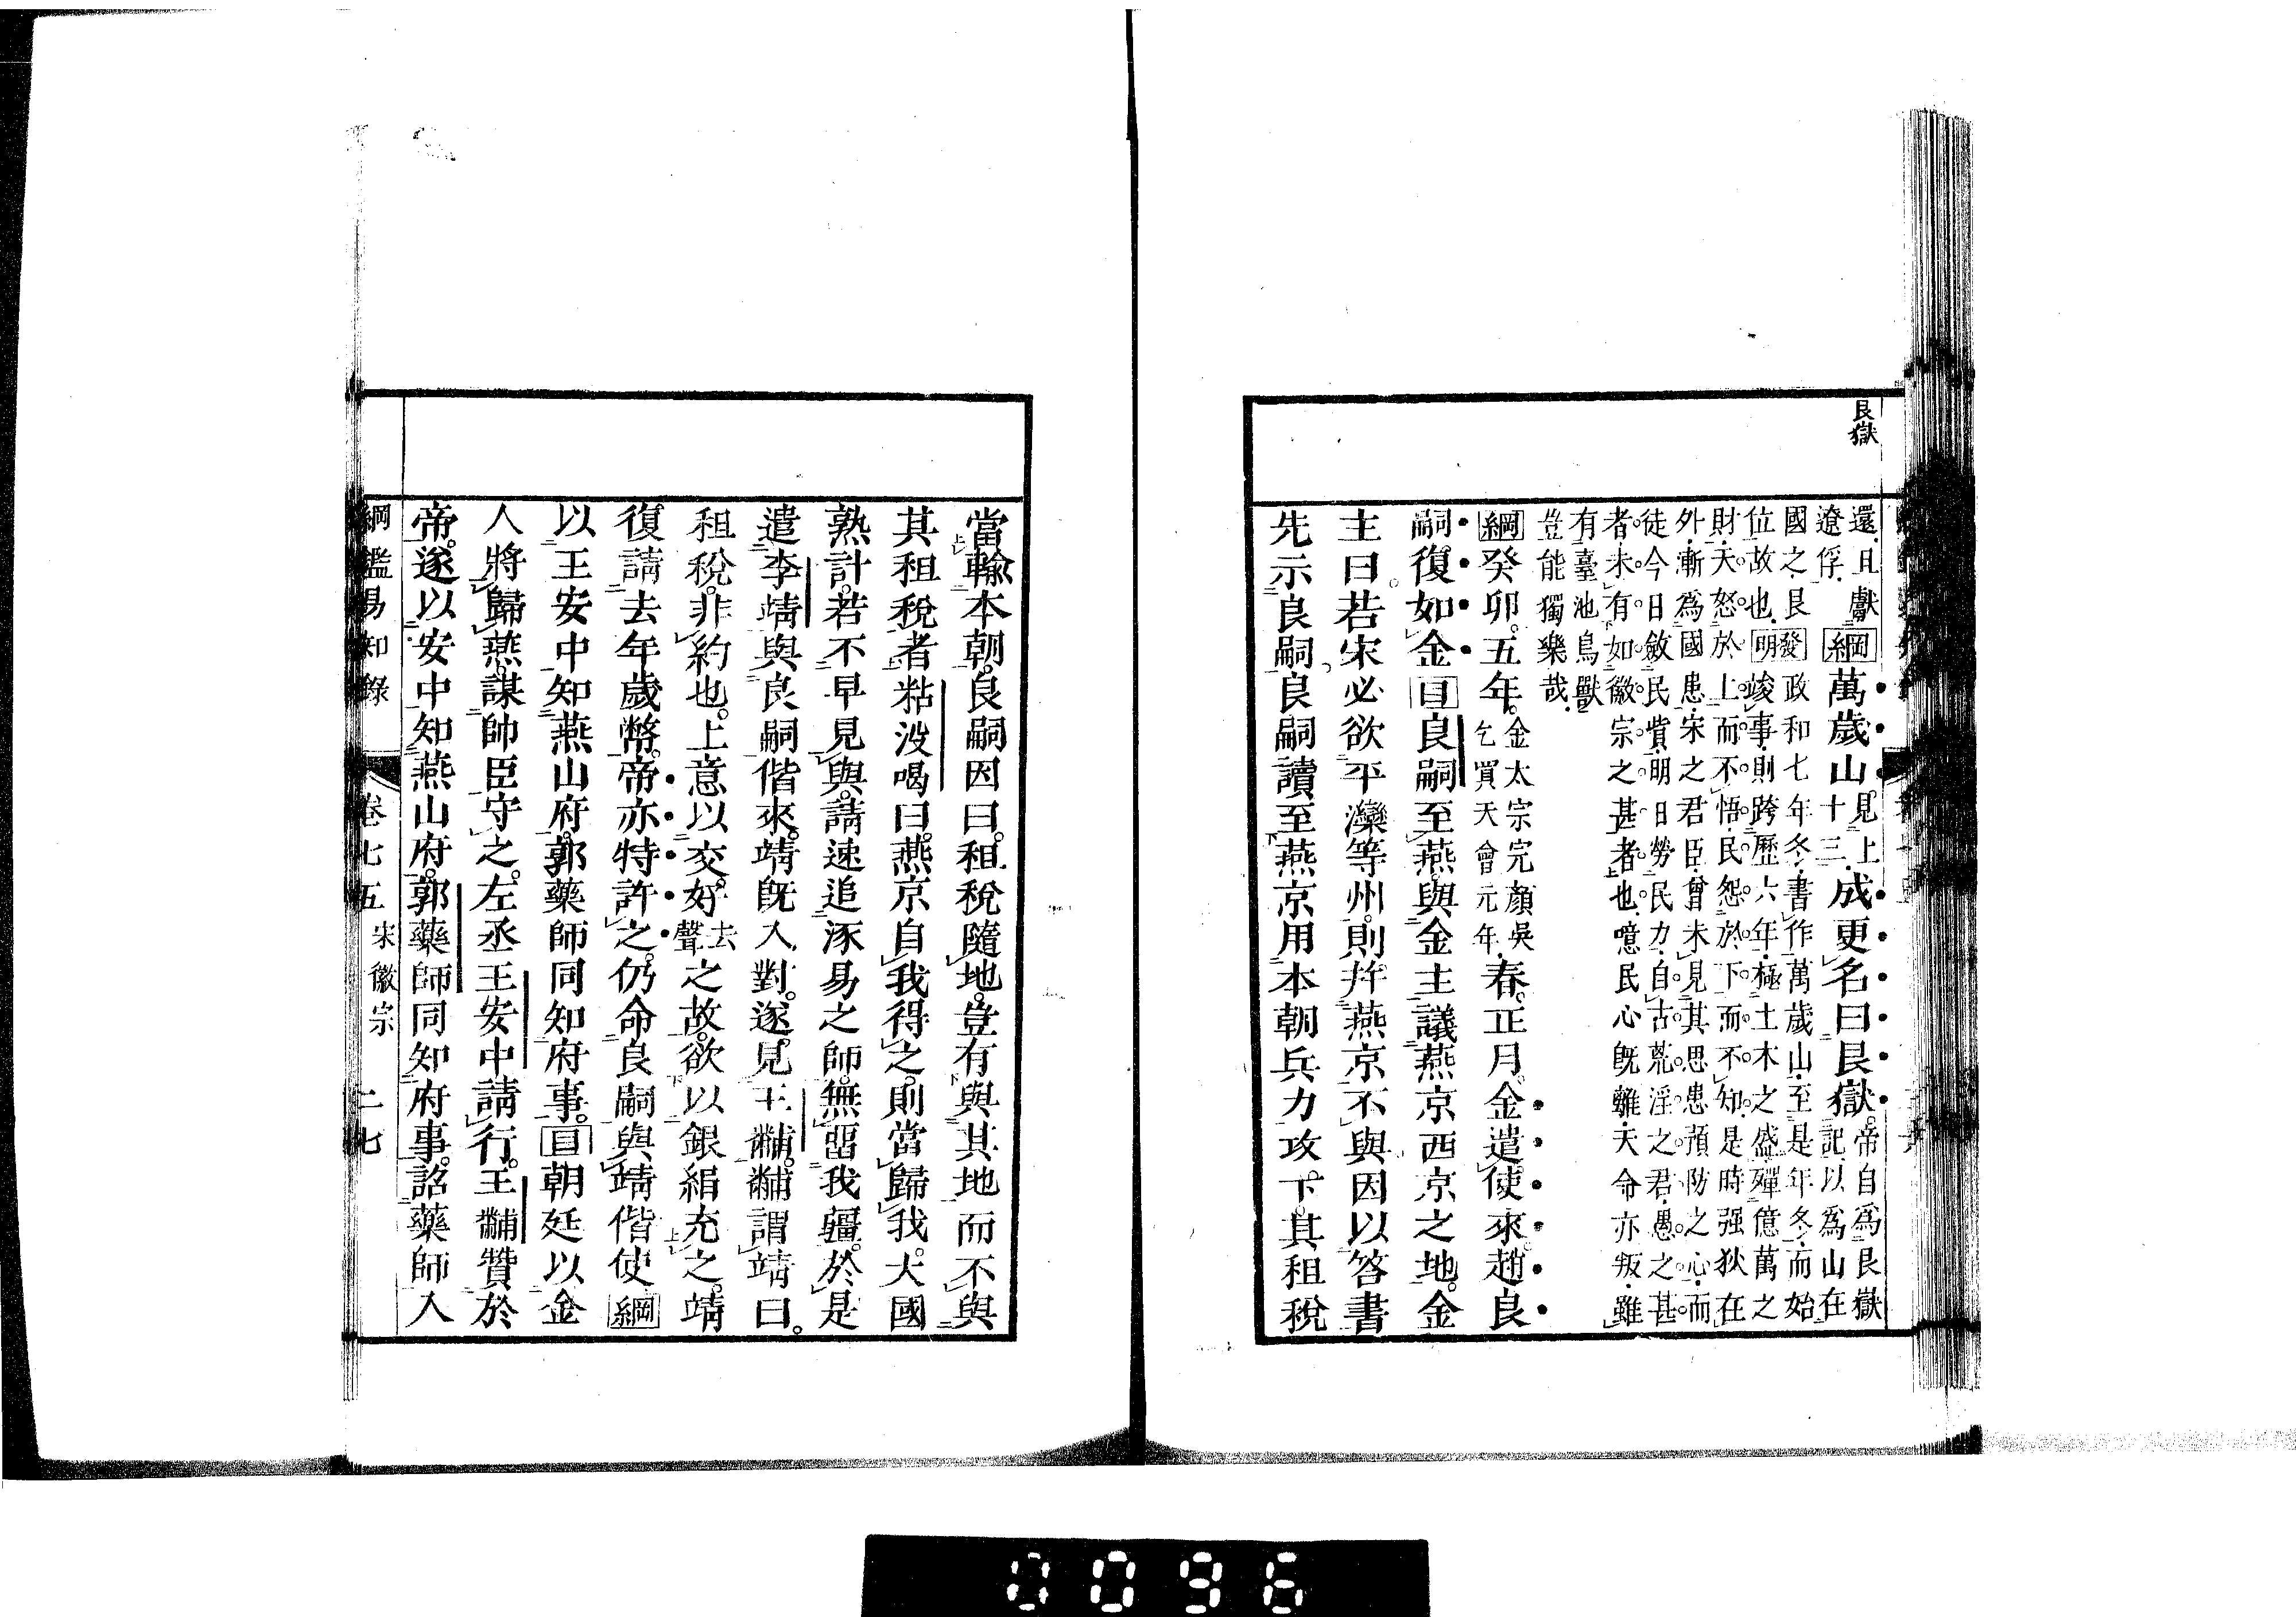 艮嶽
還且獻
遼俘
綱萬歲山見上
十三成更名曰艮嶽帝自爲艮嶽
記以爲山在
國之艮
位故也發明政和七年冬書作萬歲山至是年冬而始
竣事則跨歷六年極土木之盛殫億萬之
財天怒於上而不悟民怨於下而不知是時强狄在
外漸爲國患宋之君臣曾未見其思患預防之心而
徒今日斂民貲明日勞民力自古荒淫之君愚之甚
者未有如徽宗之甚者也噫民心旣離天命亦叛雖
有臺池鳥獸
豈能獨樂哉
綱癸卯五年金太宗完顏吳
乞買天會元年春正月金遣使來趙良
嗣復如金目良嗣至燕與金主議燕京西京之地金
主曰若宋必欲平灤等州則幷燕京不與因以答書
先示良嗣良嗣讀至燕京用本朝兵力攻下其租稅
當輸本朝良嗣因曰租稅隨地豈有與其地而不與
其租稅者粘沒喝曰燕京自我得之則當歸我大國
熟計若不早見與請速追涿易之師無留我疆於是
遣李靖與良嗣偕來靖旣入對遂見王黼黼謂靖曰
租稅非約也上意以交好去
聲之故欲以銀絹充之靖
復請去年歲幣帝亦特許之仍命良嗣與靖偕使綱
以王安中知燕山府郭藥師同知府事目朝廷以金
人將歸燕謀帥臣守之左丞王安中請行王黼贊於
帝遂以安中知燕山府郭藥師同知府事詔藥師入
綱鑑易知錄 卷七五 宋徽宗 二七
0096